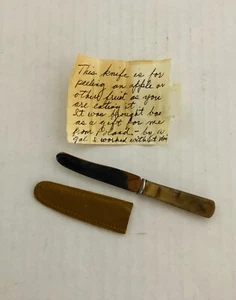 This knife is for
peeling an apple or
other fruit as you
are eating it.
It was brought bac
as a gift for me
from Poland - by a
gal I worked with at